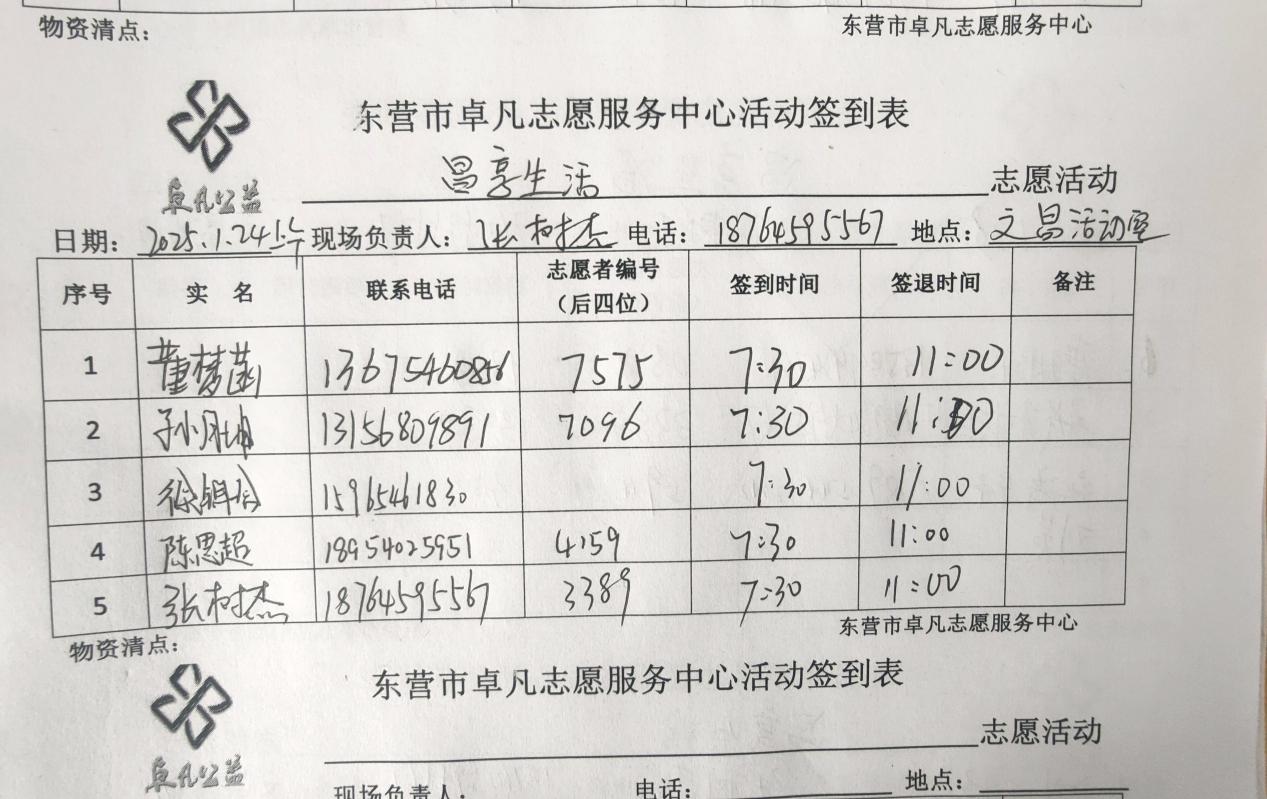 物资清点：
东营市卓凡志愿服务中心
东营市卓凡志愿服务中心活动签到表
卓凡公益
昌享生活 志愿活动
日期：2025.1.24上午 现场负责人：张树杰 电话：18764595567 地点：文昌活动室
序号 实 名 联系电话 志愿者编号（后四位） 签到时间 签退时间 备注
1 董梦菡 13675460856 7575 7:30 11:00
2 13156809891 7096 7:30 11:00
3 15965461830 7:30 11:00
4 陈思超 18954025951 4159 7:30 11:00
5 张树杰 18764595567 3389 7:30 11:00
物资清点：
东营市卓凡志愿服务中心
东营市卓凡志愿服务中心活动签到表
卓凡公益
志愿活动
现场负责人： 电话： 地点：